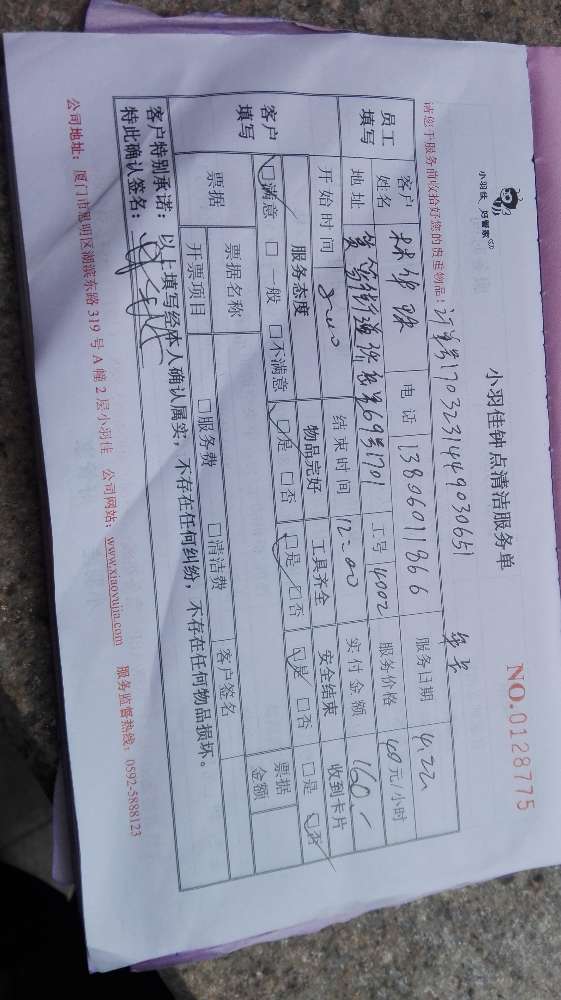 小羽佳 好管家
小羽佳钟点清洁服务单
NO.0128775
请您于服务前收拾好您的贵重物品！ 订单号1703231449030651 年卡
员工填写 客户姓名 林华珠 电话 13806011866 服务日期 4.22
地址 69号1701 工号 4002 服务价格 40元/小时
开始时间 8:00 结束时间 12:00 实付金额 160.-
客户填写 服务态度 物品完好 工具齐全 安全结束 收到卡片
☑满意 □一般 □不满意 ☑是 □否 ☑是 □否 ☑是 □否 □是 ☑否
票据 票据名称 客户签名 票据金额
开票项目 □服务费 □清洁费
客户特别承诺：以上填写经本人确认属实，不存在任何纠纷，不存在任何物品损坏。
特此确认签名：
公司地址：厦门市思明区湖滨东路319号A幢2层小羽佳 公司网站：www.xiaoyujia.com 服务监督热线：0592-5888123